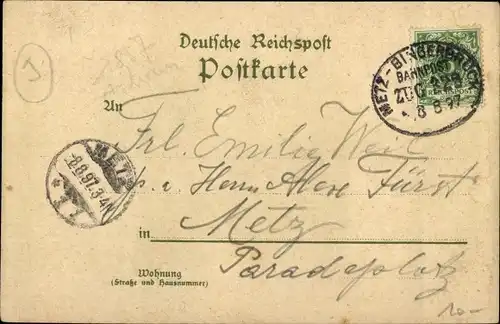 Deutsche Reichspost
Postkarte
METZ - BINGERBRÜCK
BAHNPOST
ZUG
8 8 97
An
Frl. Emilie Weil
Herrn Alex Fürst
METZ
8.8.97.3-4N
Metz
in
Paradeplatz
Wohnung
(Straße und Hausnummer)
10.-